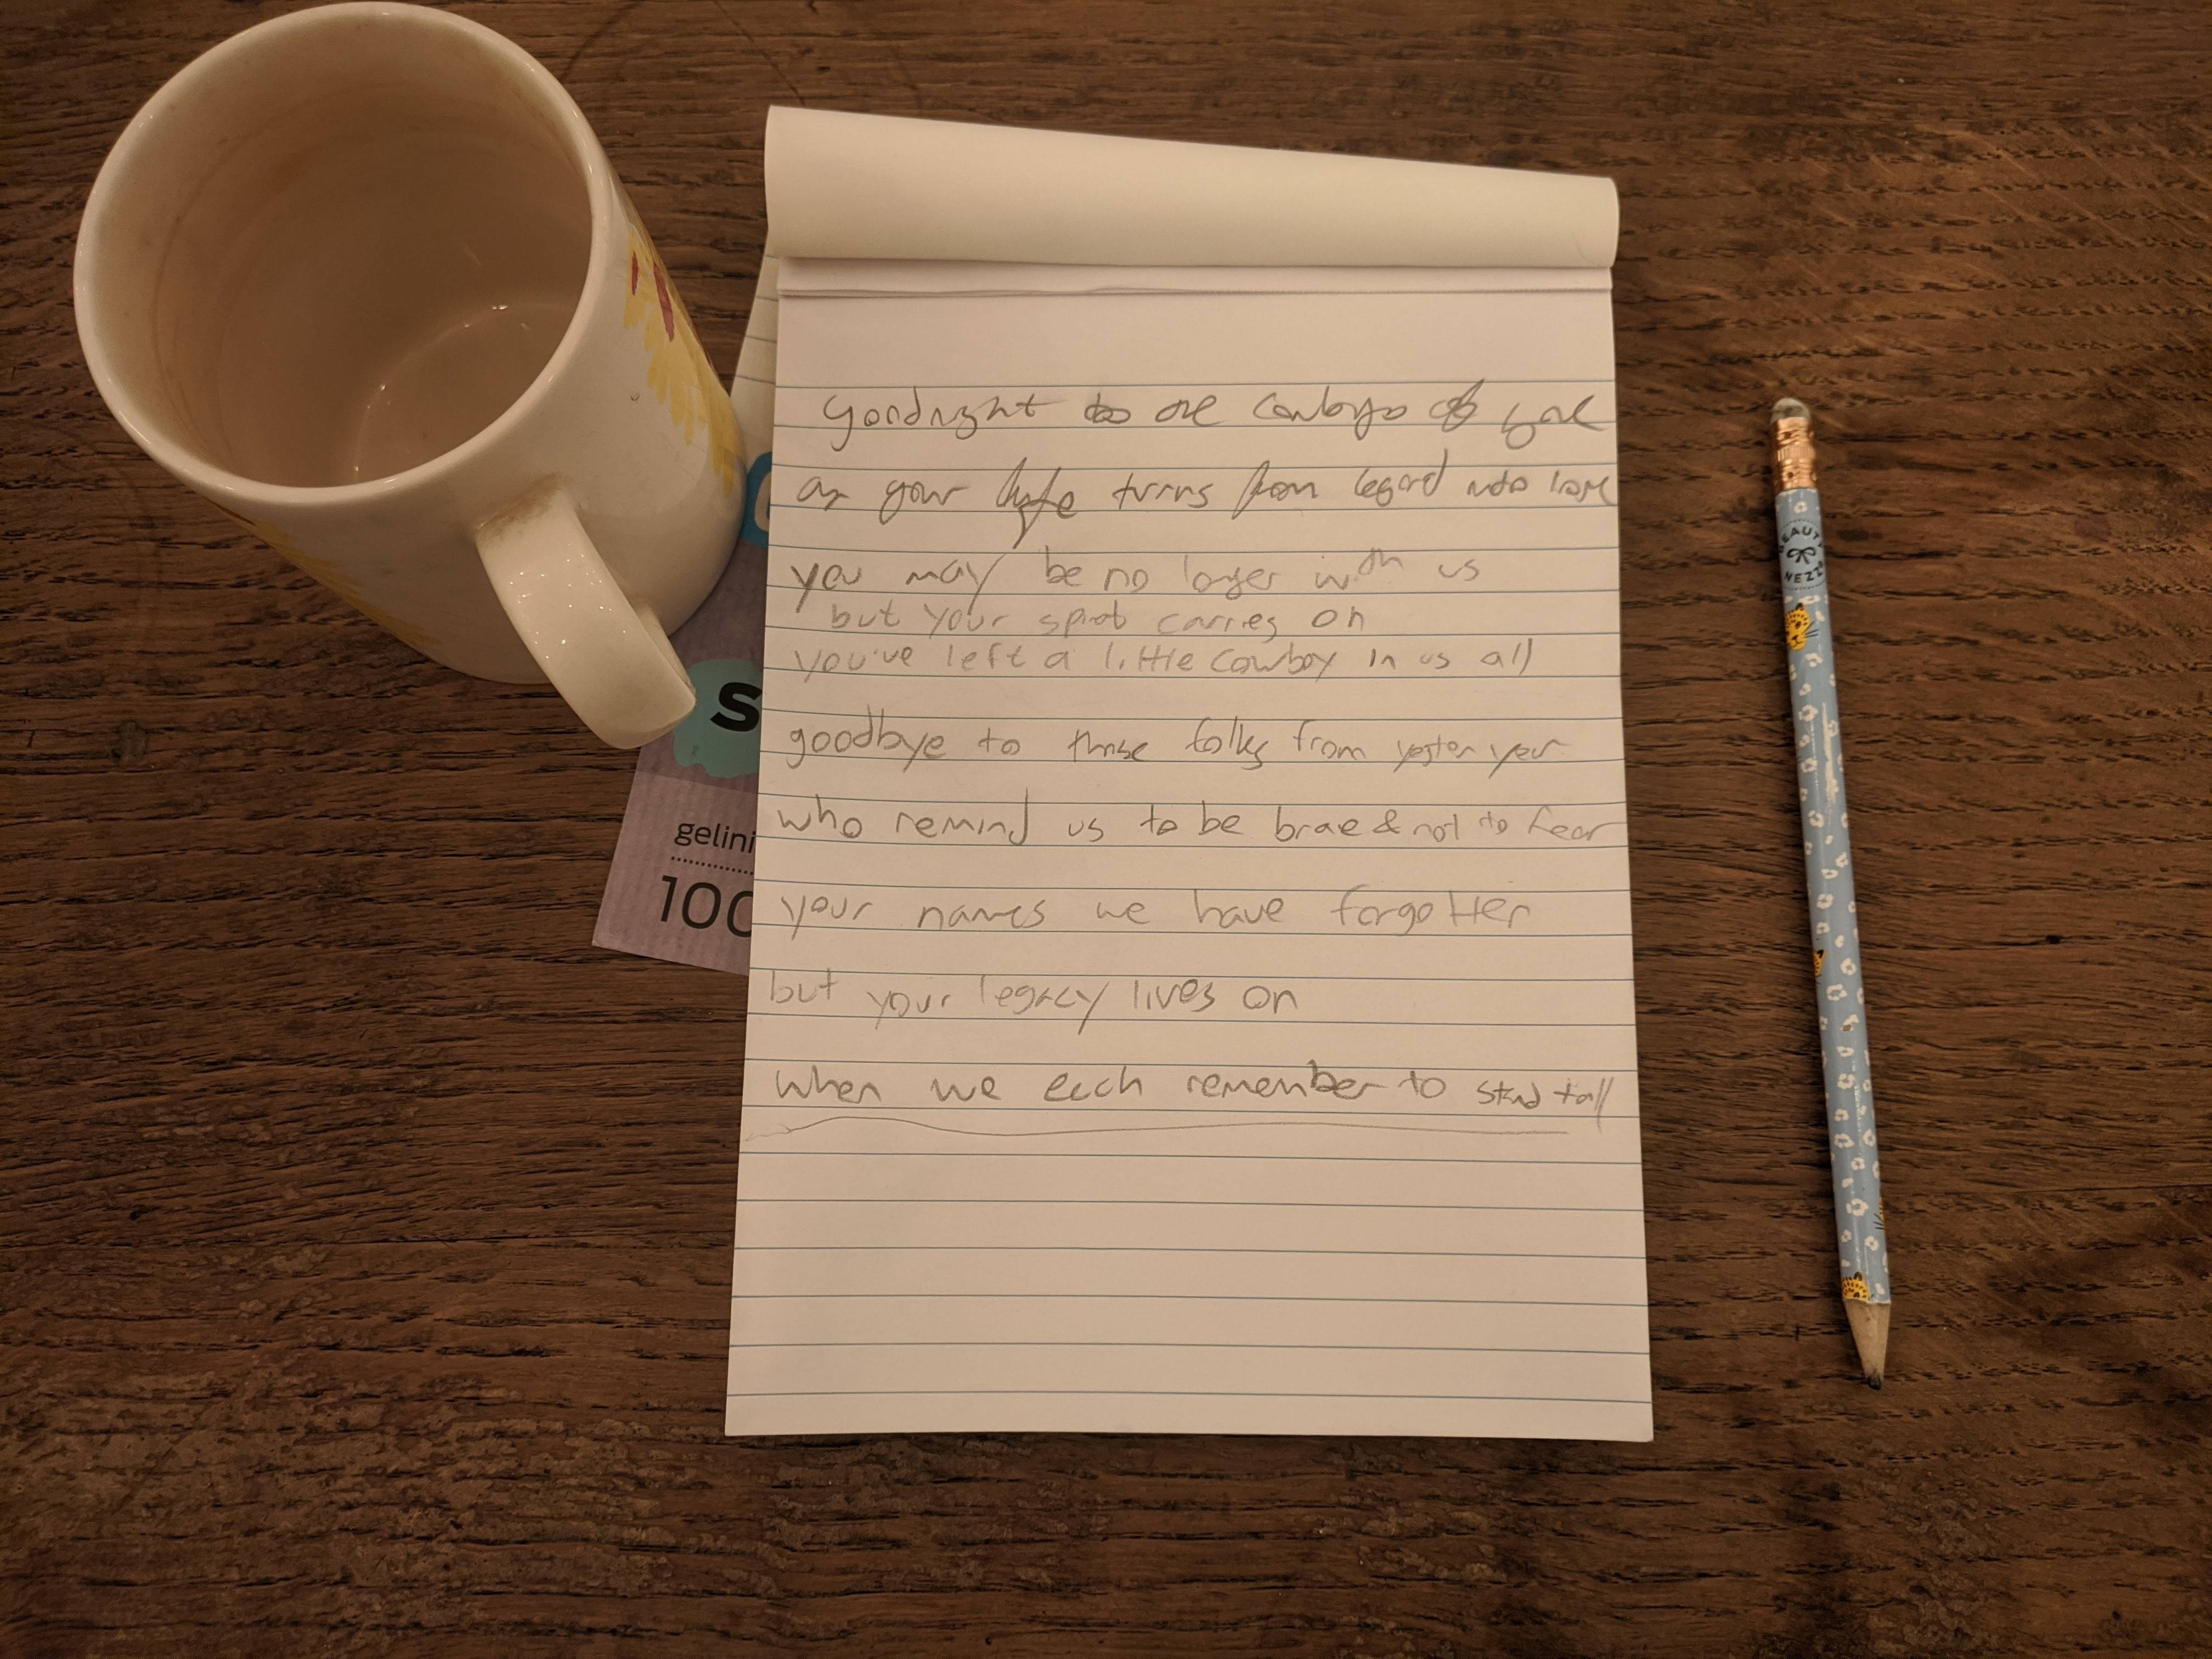 goodnight to the cowboys of yore
as your life turns from legend into lore
you may be no longer with us
but your spirit carries on
you've left a little cowboy in us all
goodbye to those folks from yester year
who remind us to be brae & not to fear
your names we have forgotten
but your legacy lives on
when we each remember to stand tall
S
gelini
100
BEAUTY
NEZZ